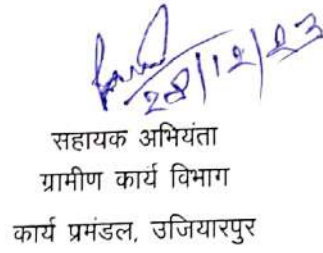 28/12/23
सहायक अभियंता
ग्रामीण कार्य विभाग
कार्य प्रमंडल, उजियारपुर